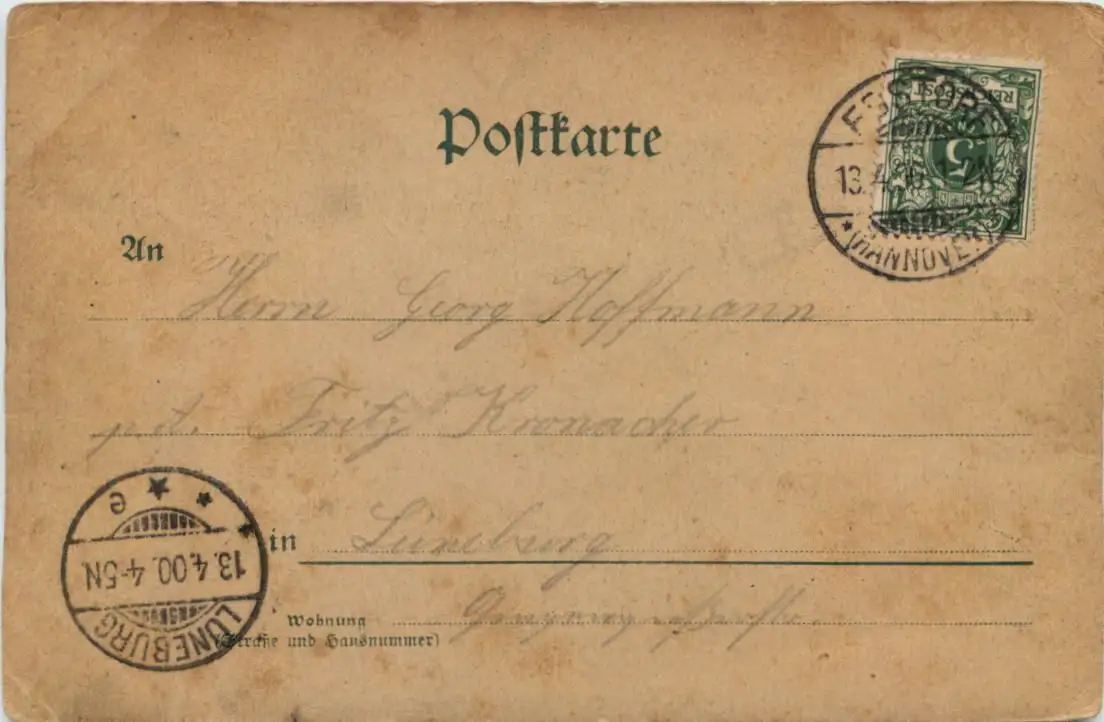 Postkarte
REICHSPOST
5
13.4.
(HANNOVER)
An
Herrn Georg Hoffmann
Fritz Kronacher
in Lüneburg
Wohnung
(Straße und Hausnummer)
LÜNEBURG
13.4.00.4-5N.
e